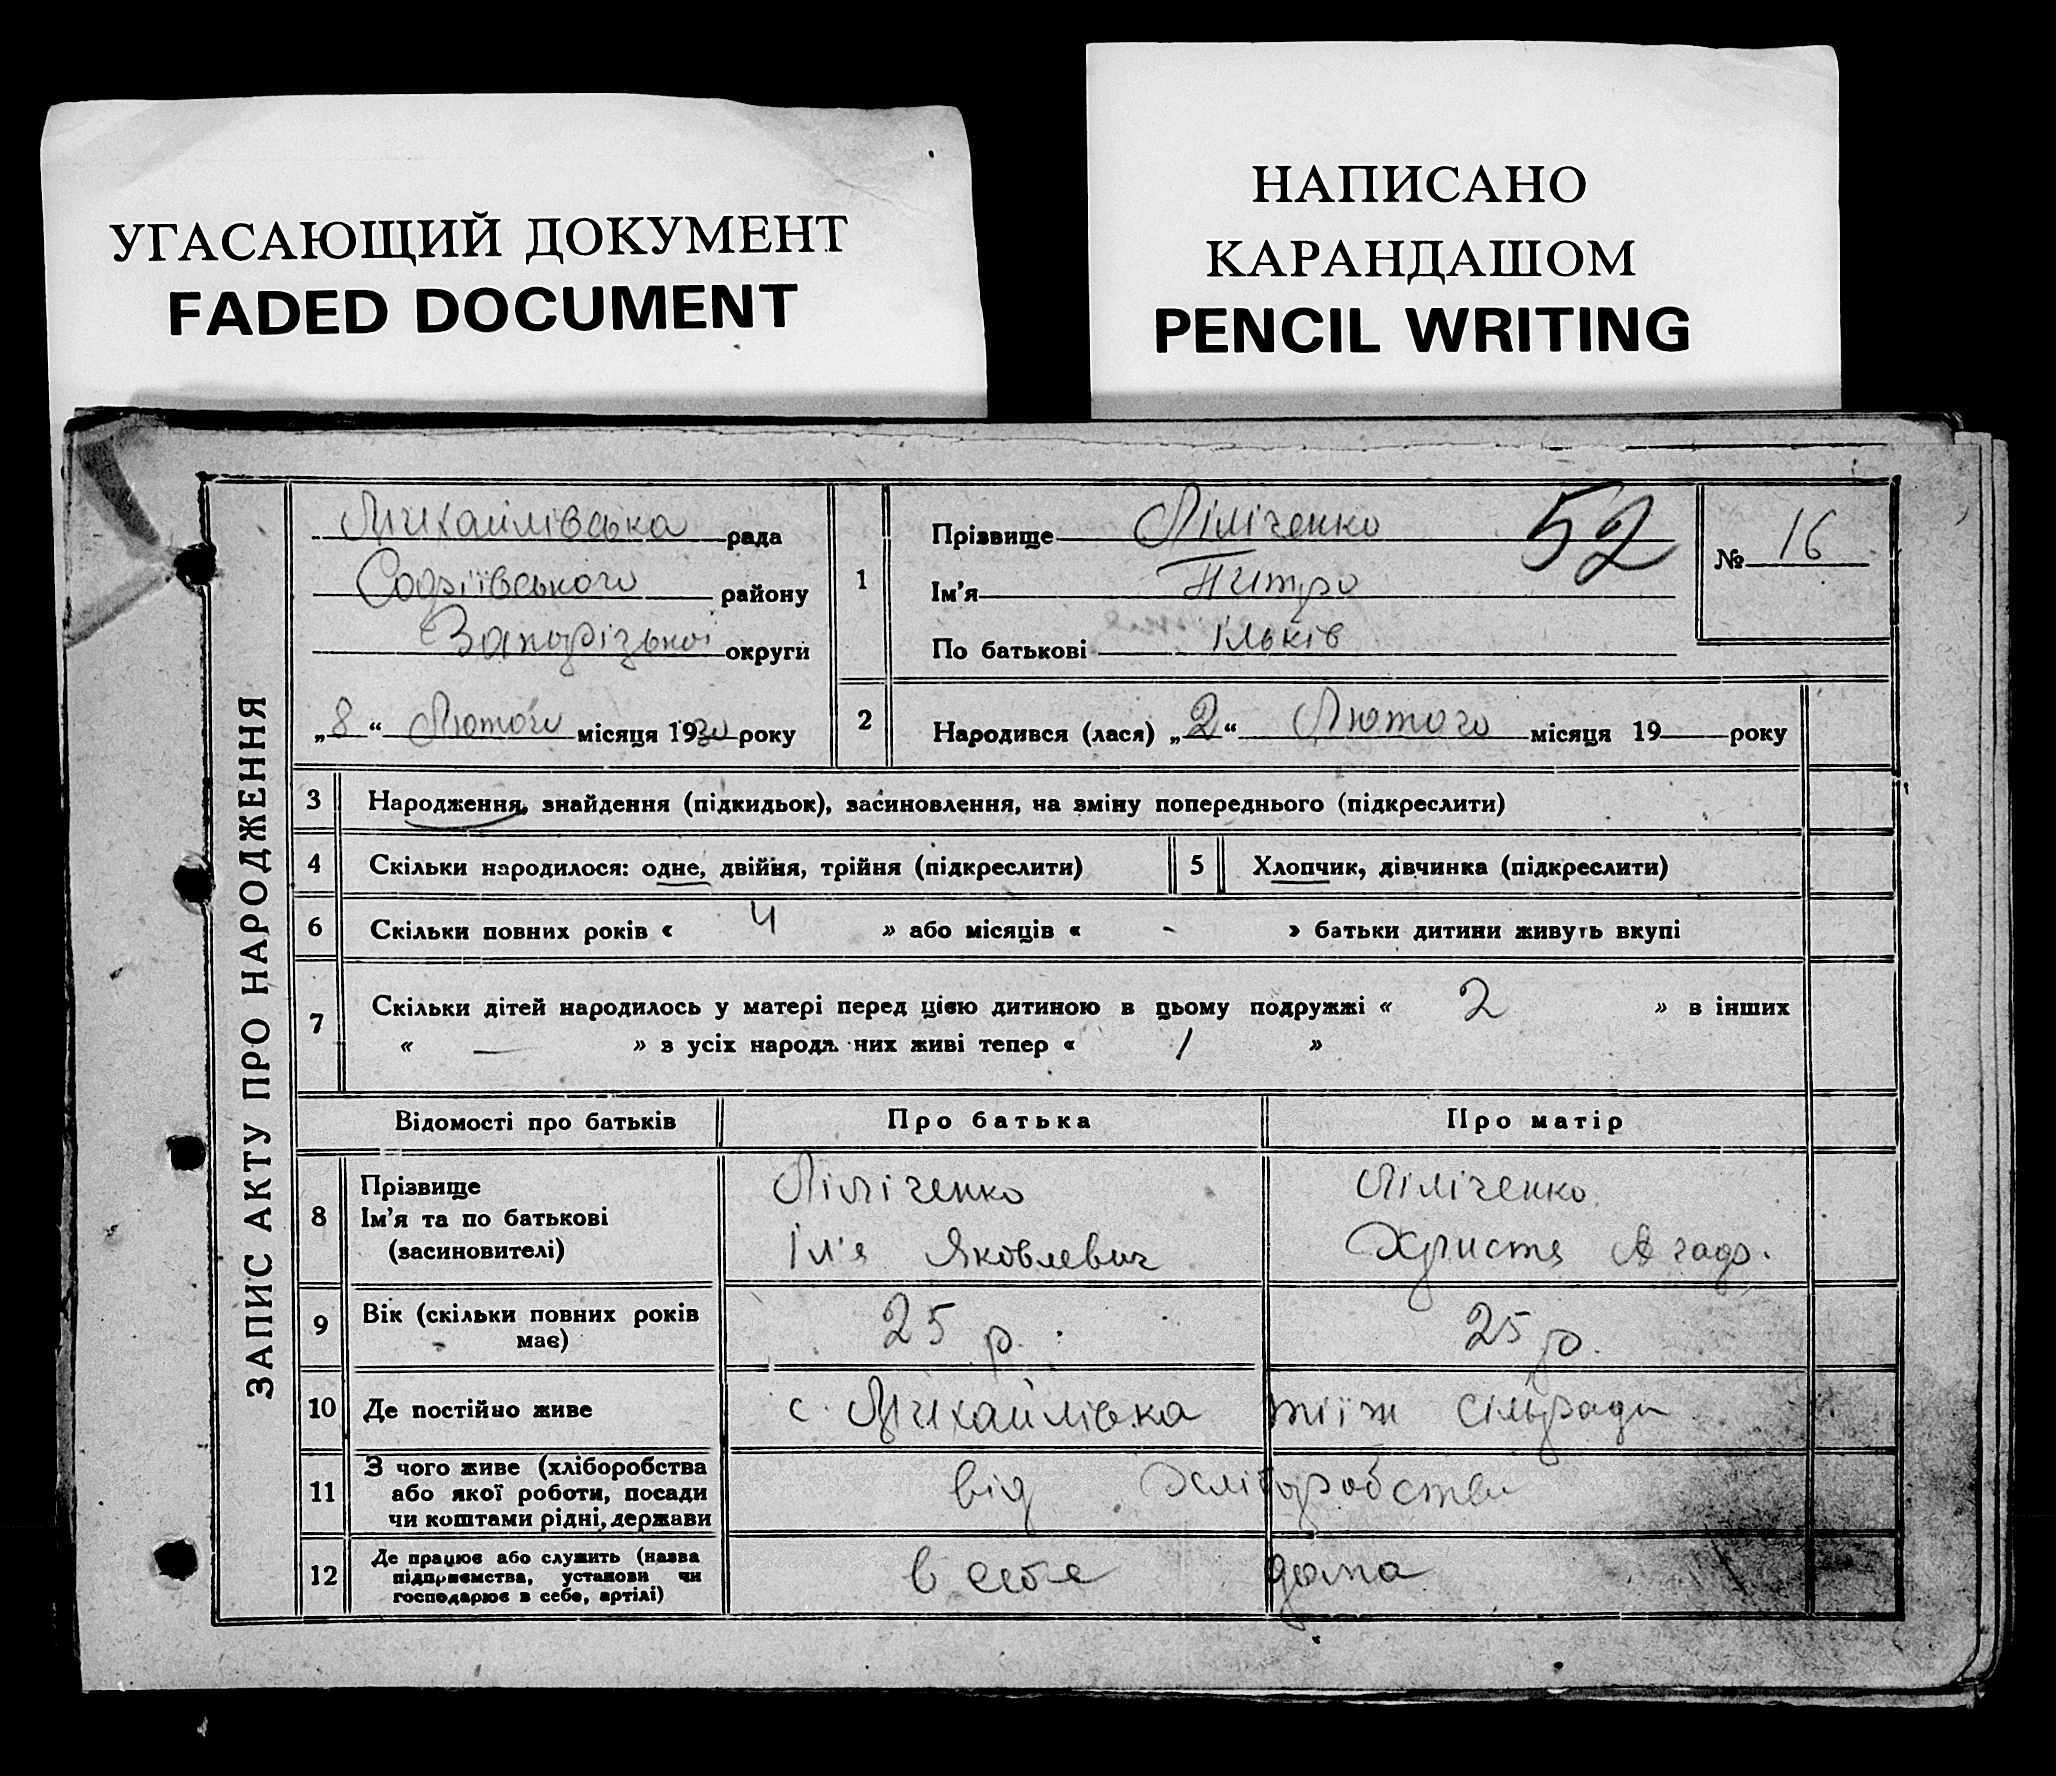 УГАСАЮЩИЙ ДОКУМЕНТ
FADED DOCUMENT
НАПИСАНО
КАРАНДАШОМ
PENCIL WRITING
ЗАПИС АКТУ ПРО НАРОДЖЕННЯ
Михайлівська рада
Софіївського району
Запорізької округи
„8“ Лютого місяця 1930 року
1
Прізвище Ліліченко
Ім'я Питро
По батькові Ільків
52
№ 16
2
Народився (лася) „2“ Лютого місяця 19 року
3 Народження, знайдення (підкидьок), засиновлення, на зміну попереднього (підкреслити)
4 Скільки народилося: одне, двійня, трійня (підкреслити) 5 Хлопчик, дівчинка (підкреслити)
6 Скільки повних років « 4 » або місяців « - » батьки дитини живуть вкупі
7 Скільки дітей народилось у матері перед цією дитиною в цьому подружжі « 2 » в інших
« — » з усіх народж. них живі тепер « 1 »
Відомості про батьків Про батька Про матір
8 Прізвище Ліліченко Ліліченко
Ім'я та по батькові
(засиновителі) Іл'я Яковлевич Христя Агаф.
9 Вік (скільки повних років має) 25 р. 25 р.
10 Де постійно живе с. Михайлівка тіїж сільради
11 З чого живе (хліборобства
або якої роботи, посади
чи коштами рідні, держави від хліборобства
12 Де працює або служить (назва
підприємства, установи чи
господарює в себе, артілі) в себе дома